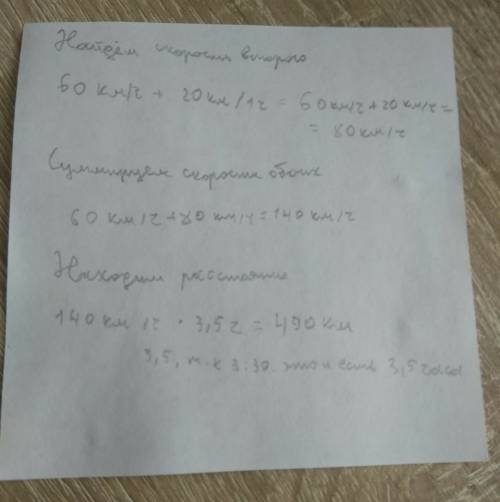 Найдём скорость второго
60 км/ч + 20 км/1ч = 60км/ч+20 км/ч =
= 80км/ч
Суммируем скорости обоих
60 км/ч+80 км/ч=140 км/ч
Находим расстояние
140 км/ч · 3,5ч = 490 км
3,5, т.к 3:30. это и есть 3,5 часа